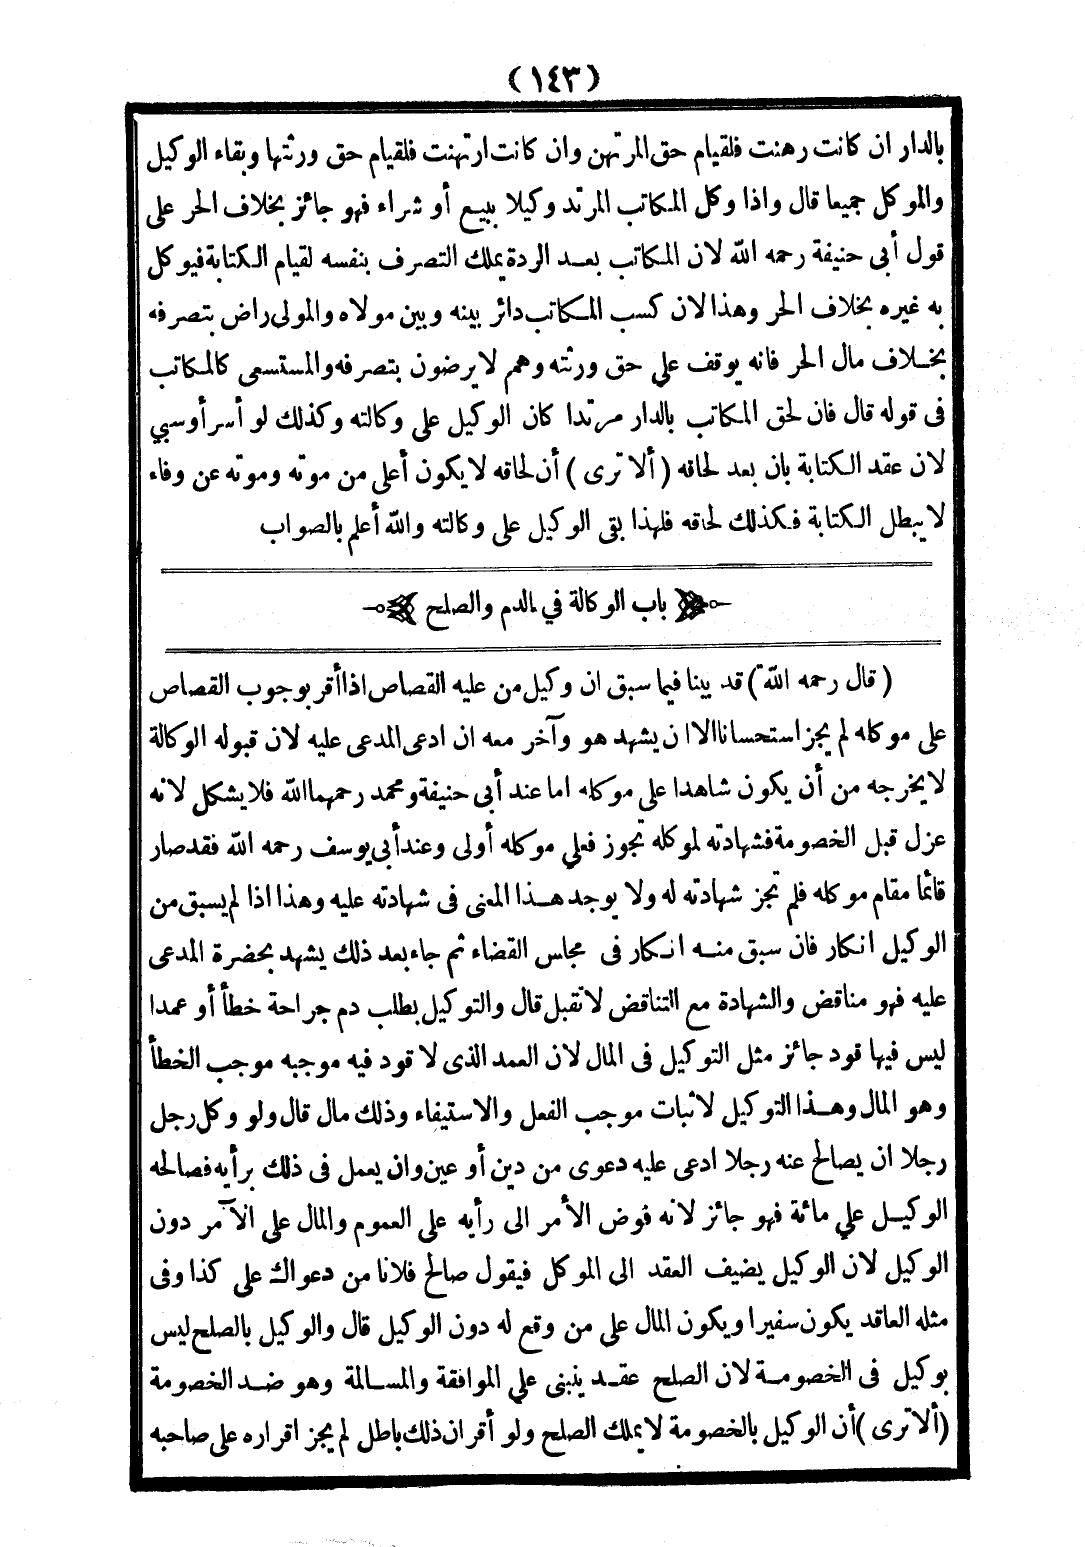 (١٤٣)
بالدار ان كانت رهنت فلقيام حق المرتهن وان كانت ارتهنت فلقيام حق ورثتها وبقاء الوكيل
والموكل جميعا قال واذا وكل المكاتب المرتد وكيلا ببيع أو شراء فهو جائز بخلاف الحر على
قول أبى حنيفة رحمه الله لان المكاتب بعد الردة يملك التصرف بنفسه لقيام الكتابة فيوكل
به غيره بخلاف الحر وهذا لان كسب المكاتب دائر بينه وبين مولاه والمولى راض بتصرفه
بخلاف مال الحر فانه يوقف على حق ورثته وهم لا يرضون بتصرفه والمستسعى كالمكاتب
فى قوله قال فان لحق المكاتب بالدار مرتدا كان الوكيل على وكالته وكذلك لو أسر أو سبي
لان عقد الكتابة بان بعد لحاقه (ألا ترى) أن لحاقه لا يكون أعلى من موته وموته عن وفاء
لا يبطل الكتابة فكذلك لحاقه فلهذا بقى الوكيل على وكالته والله أعلم بالصواب
باب الوكالة في الدم والصلح
(قال رحمه الله) قد بينا فيما سبق ان وكيل من عليه القصاص اذا أقر بوجوب القصاص
على موكله لم يجز استحسانا الا ان يشهد هو وآخر معه ان ادعى المدعى عليه لان قبوله الوكالة
لا يخرجه من أن يكون شاهدا على موكله اما عند أبى حنيفة ومحمد رحمهما الله فلا يشكل لانه
عزل قبل الخصومة فشهادته لموكله تجوز فعلي موكله أولى وعند أبى يوسف رحمه الله فقد صار
قائما مقام موكله فلم تجز شهادته له ولا يوجد هذا المعنى فى شهادته عليه وهذا اذا لم يسبق من
الوكيل انكار فان سبق منه انكار فى مجلس القضاء ثم جاء بعد ذلك يشهد بحضرة المدعى
عليه فهو مناقض والشهادة مع التناقض لا تقبل قال والتوكيل بطلب دم جراحة خطأ أو عمدا
ليس فيها قود جائز مثل التوكيل فى المال لان العمد الذى لا قود فيه موجبه موجب الخطأ
وهو المال وهذا التوكيل لاثبات موجب الفعل والاستيفاء وذلك مال قال ولو وكل رجل
رجلا ان يصالح عنه رجلا ادعى عليه دعوى من دين أو عين وان يعمل فى ذلك برأيه فصالحه
الوكيل علي مائة فهو جائز لانه فوض الأمر الى رأيه على العموم والمال على الآمر دون
الوكيل لان الوكيل يضيف العقد الى الموكل فيقول صالح فلانا من دعواك على كذا وفى
مثله العاقد يكون سفيرا ويكون المال على من وقع له دون الوكيل قال والوكيل بالصلح ليس
بوكيل فى الخصومة لان الصلح عقد ينبنى علي الموافقة والمسالمة وهو ضد الخصومة
(ألا ترى) أن الوكيل بالخصومة لا يملك الصلح ولو أقر ان ذلك باطل لم يجز اقراره على صاحبه